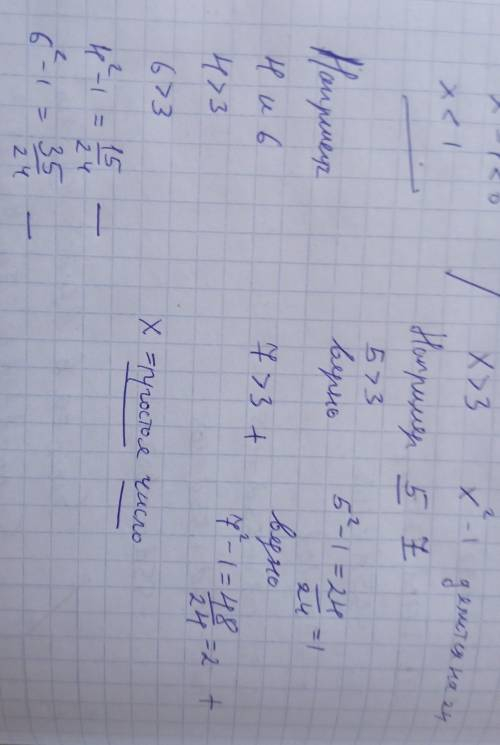 x < 1
Например
4 и 6
4 > 3
6 > 3
4² - 1 = 15/24 —
6² - 1 = 35/24 —
x > 3 x² - 1 делится на 24
Например 5 7
5 > 3
верно 5² - 1 = 24/24 = 1
7 > 3 + верно
7² - 1 = 48/24 = 2 +
x = простое число